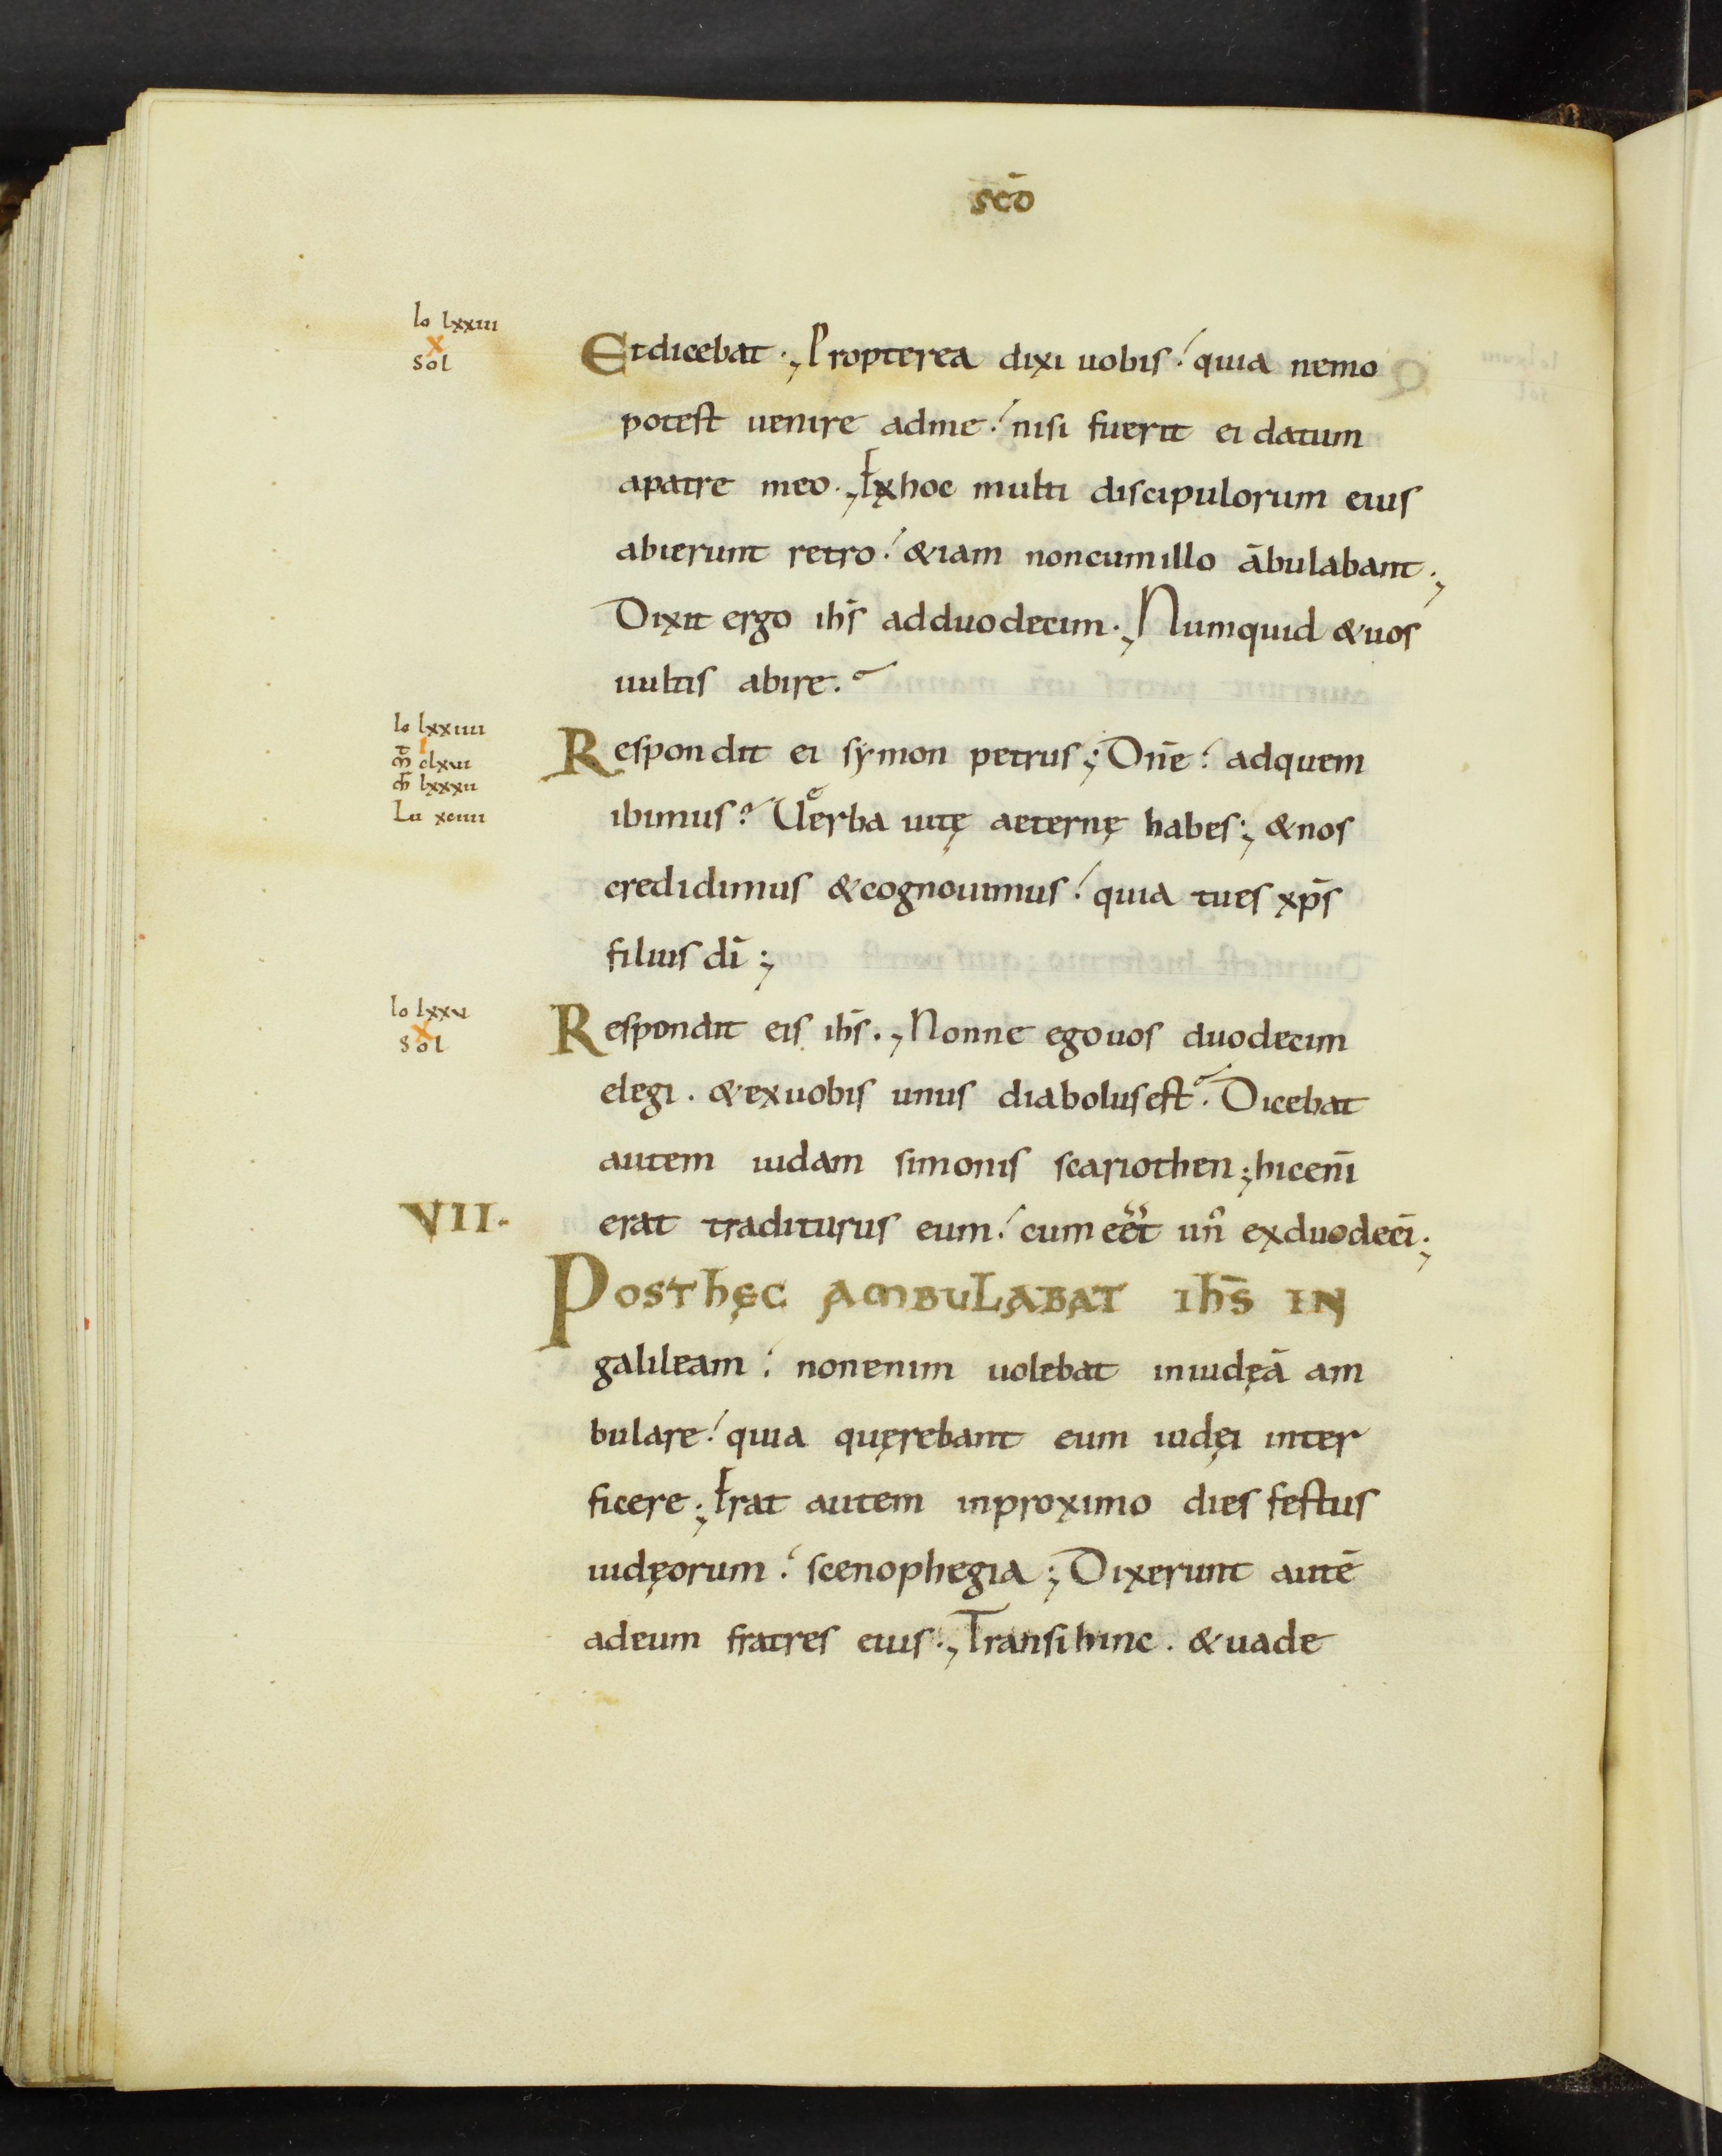 scō
Io lxxiii
X
sol
Et dicebat ; Propterea dixi uobis quia nemo
potest uenire adme nisi fuerit ei datum
apatre meo ; Exhoc multi discipulorum eius
abierunt retro &iam noncumillo ābulabant ;
Dixit ergo ihs̄ adduodecim ; Numquid &uos
uultis abire.
Io lxxiiii
I
m̄ clxvi
m̄ lxxxii
Lu xciiii
Respondit ei sẏmon petrus ; Dn̄e adquem
ibimus? Uerba uitę aeternę habes ; &nos
credidimus &cognouimus quia tues xp̄s
filius dī ;
Io lxxv
X
sol
Respondit eis ihs̄ ; Nonne egouos duodecim
elegi . &exuobis unus diabolusest Dicebat
autem iudam simonis scariothen ; hicenī
erat traditurus eum cum eēt un̄ exduodecī ;
VII.
Posthęc ambulabat ihs̄ in
galileam nonenim uolebat iniudęā am
bulare quia quęrebant eum iudęi inter
ficere ; Erat autem inproximo dies festus
iudęorum scenophegia ; Dixerunt autē
adeum fratres eius ; Transi hinc . &uade